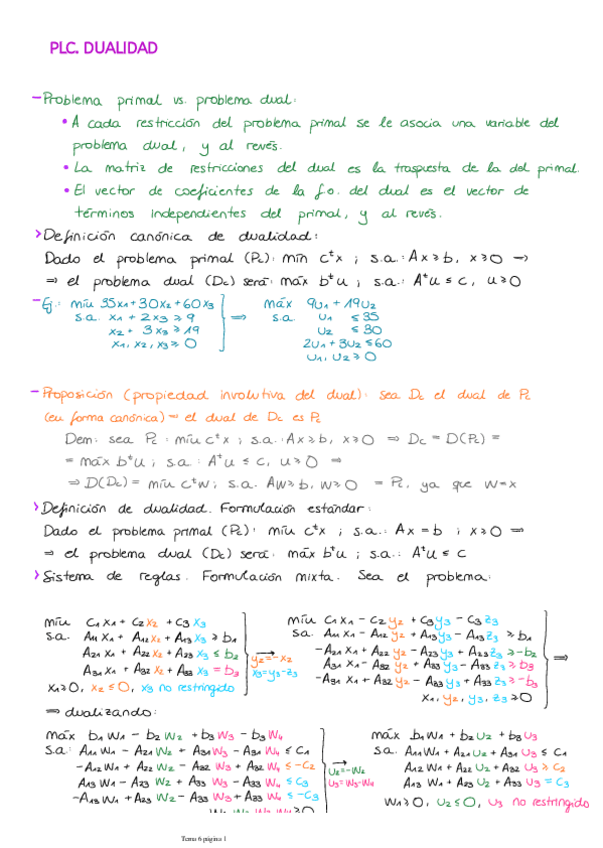 PLC. DUALIDAD
- Problema primal vs. problema dual:
• A cada restricción del problema primal se le asocia una variable del
problema dual, y al revés.
• La matriz de restricciones del dual es la traspuesta de la del primal.
• El vector de coeficientes de la f.o. del dual es el vector de
términos independientes del primal, y al revés.
> Definición canónica de dualidad:
Dado el problema primal (Pc): mín cᵗx ; s.a.: Ax ≥ b, x ≥ 0 ⇒
⇒ el problema dual (Dc) será: máx bᵗu ; s.a.: Aᵗu ≤ c, u ≥ 0
- Ej.: mín 35x1 + 30x2 + 60x3 ⇒ máx 9u1 + 19u2
s.a. x1 + 2x3 ≥ 9 s.a. u1 ≤ 35
x2 + 3x3 ≥ 19 u2 ≤ 30
x1, x2, x3 ≥ 0 2u1 + 3u2 ≤ 60
u1, u2 ≥ 0
- Proposición (propiedad involutiva del dual): sea Dc el dual de Pc
(en forma canónica) ⇒ el dual de Dc es Pc
Dem: sea Pc: mín cᵗx ; s.a.: Ax ≥ b, x ≥ 0 ⇒ Dc = D(Pc) =
= máx bᵗu ; s.a.: Aᵗu ≤ c, u ≥ 0 ⇒
⇒ D(Dc) = mín cᵗw ; s.a. Aw ≥ b, w ≥ 0 = Pc, ya que w=x
> Definición de dualidad. Formulación estándar:
Dado el problema primal (Pc): mín cᵗx ; s.a.: Ax = b ; x ≥ 0 ⇒
⇒ el problema dual (Dc) será: máx bᵗu ; s.a.: Aᵗu ≤ c
> Sistema de reglas. Formulación mixta. Sea el problema:
mín c1x1 + c2x2 + c3x3
s.a. A11x1 + A12x2 + A13x3 ≥ b1
A21x1 + A22x2 + A23x3 ≤ b2
A31x1 + A32x2 + A33x3 = b3
x1 ≥ 0, x2 ≤ 0, x3 no restringido
→
y2=-x2
x3=y3-z3
mín c1x1 - c2y2 + c3y3 - c3z3
s.a. A11x1 - A12y2 + A13y3 - A13z3 ≥ b1
-A21x1 + A22y2 - A23y3 + A23z3 ≥ -b2
A31x1 - A32y2 + A33y3 - A33z3 ≥ b3
-A31x1 + A32y2 - A33y3 + A33z3 ≥ -b3
x1, y2, y3, z3 ≥ 0
⇒
⇒ dualizando:
máx b1w1 - b2w2 + b3w3 - b3w4
s.a: A11w1 - A21w2 + A31w3 - A31w4 ≤ c1
-A12w1 + A22w2 - A32w3 + A32w4 ≤ -c2
A13w1 - A23w2 + A33w3 - A33w4 ≤ c3
-A13w1 + A23w2 - A33w3 + A33w4 ≤ -c3
→
u2=-w2
u3=w3-w4
máx b1w1 + b2u2 + b3u3
s.a. A11w1 + A21u2 + A31u3 ≤ c1
A12w1 + A22u2 + A32u3 ≥ c2
A13w1 + A23u2 + A33u3 = c3
w1 ≥ 0, u2 ≤ 0, u3 no restringido
Tema 6 página 1